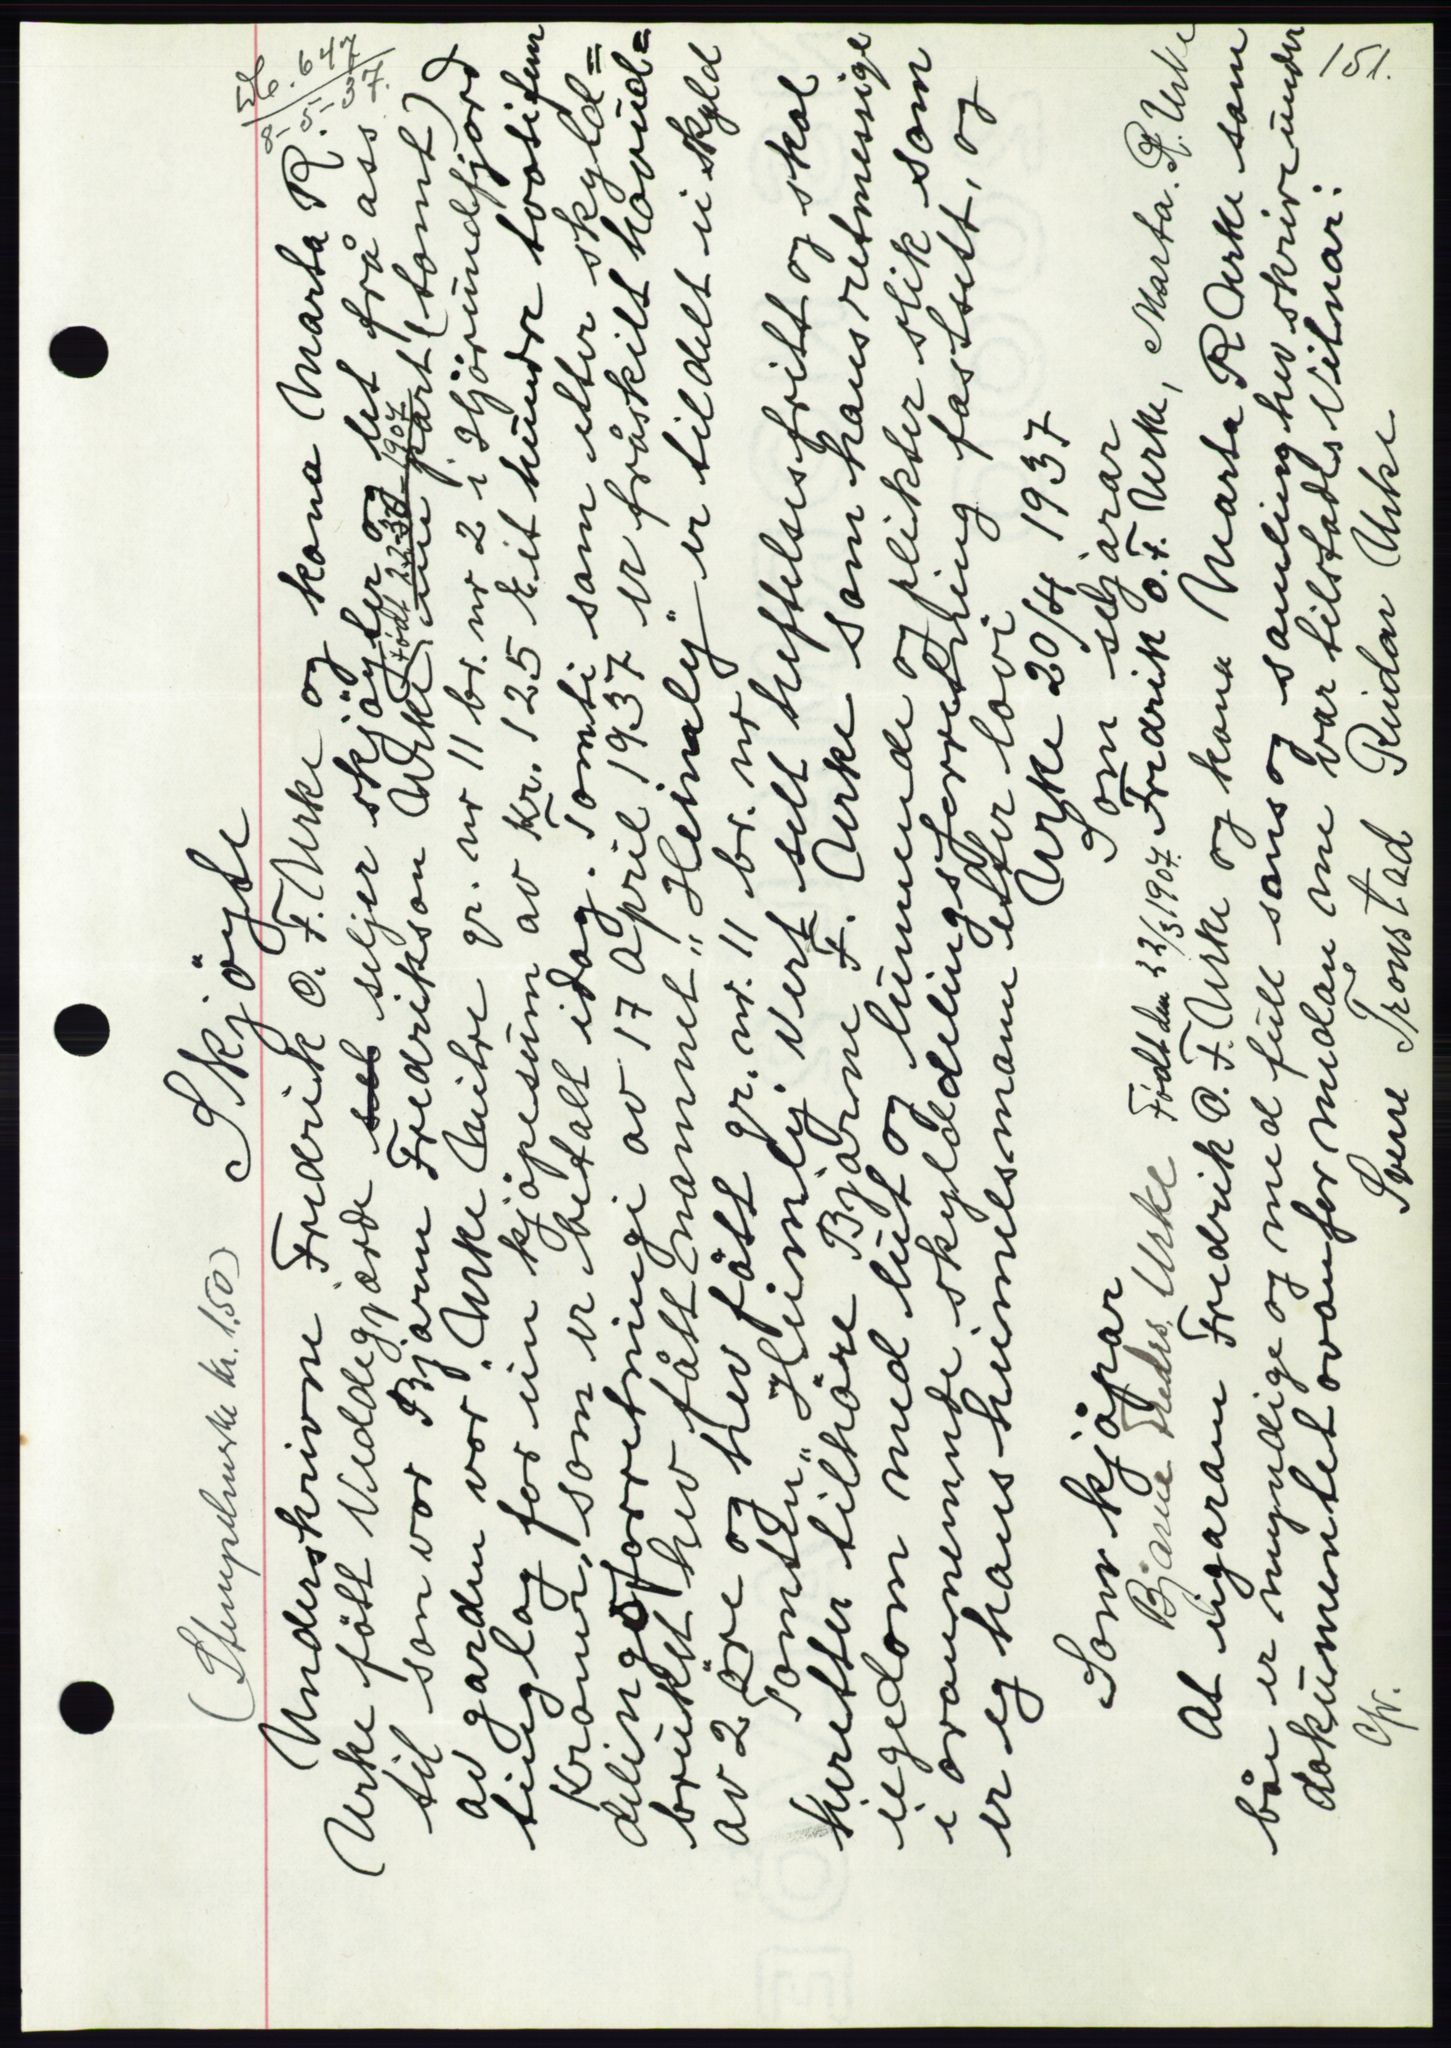 (Stempelmerke kr. 1.50)
Skjöyte
Db. 647
8/5-37
Underskrivne Fredrik O. F. Urke og kona Marta R.
Urke fött Viddegjærde sel seljer skjöyter og let frå ass
til son vor Bjarne Fredrikson Urke, ein part (tomt)
född 22.3.1907
av garden vor "Urke Midtre gr. nr 11 br. nr 2 i Hjörundfjord
tinglag for ein kjöpesum av Kr. 125 ... eit hundre tvotifem
Kroner, som er betalt idag. Tomti som etter skyld=
delingsforretningi av 17 april 1937 er fråskilt hovud=
bruket hev fått namnet "Heimly" er tildelt ei skyld
av 2 öre og hev fått gr. nr. 11 br. nr
Tomten "Heimly" vert selt heftelsesfritt og skal
heretter tilhöre Bjarne F. Urke som hans retmessige
eigedom med lut og lunnende og plikter slik som
i ovannemnde skylddelingsforretning fastsett, og
er eg hans heimelsmann etter lovi
Urke 20/4 1937
Som seljarar
Som kjöpar
Bjarne Fredr. Urke Født den 22/3 1907. Fredrik O. F. Urke, Marta R. Urke
At eigaran Fredrik O. F. Urke og kona Marta R Urke som
båe er myndige og med full sans og samling hev skrive under
dokumentet ovanfor medan me var tilstades Vitnar:
Sverre Tronstad Reidar Urke
151.